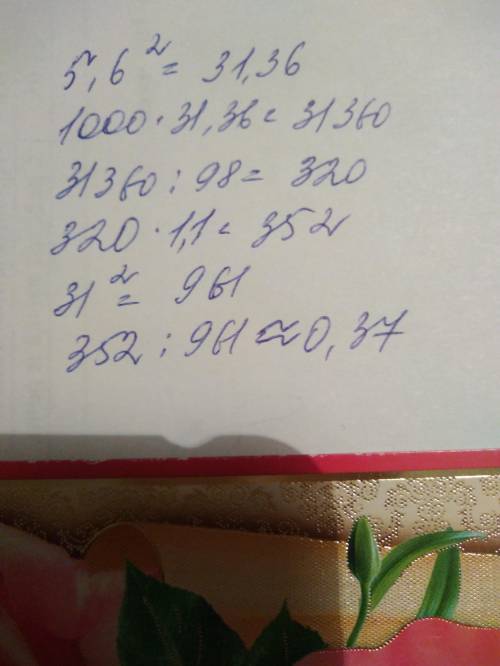 5,6² = 31,36
1000 · 31,36 = 31360
31360 : 98 = 320
320 · 1,1 = 352
31² = 961
352 : 961 ≈ 0,37